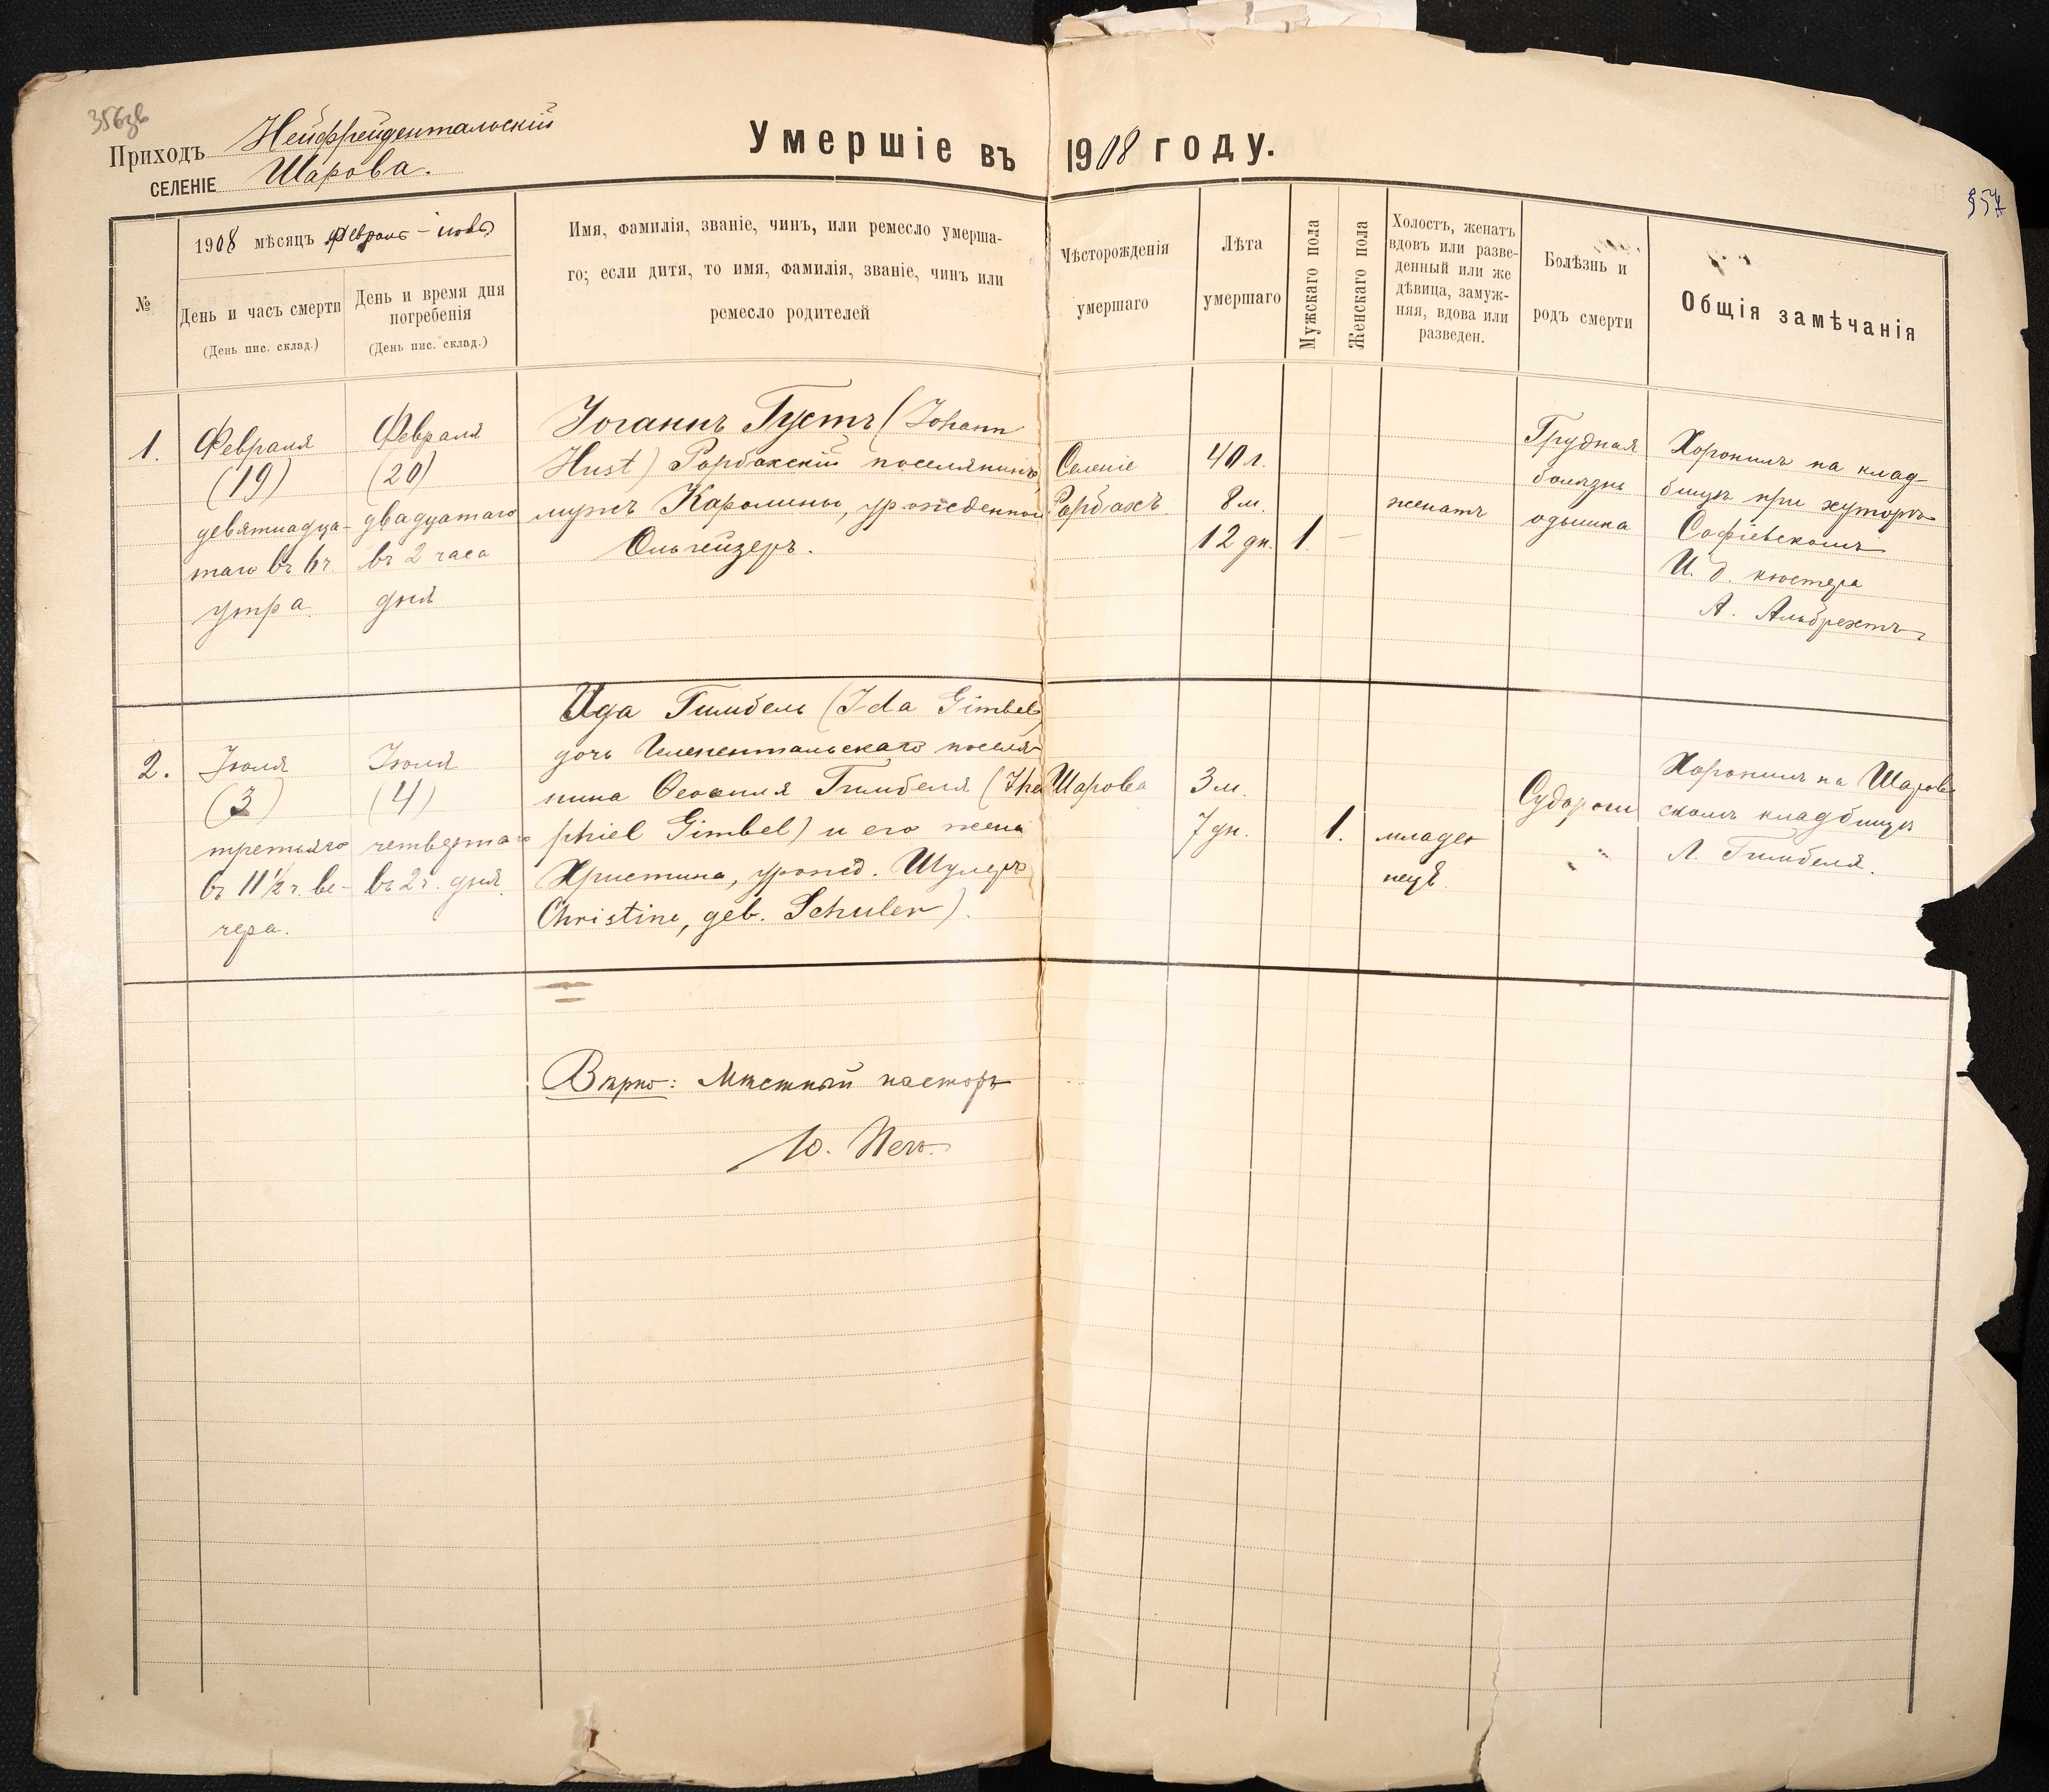 356зв
Приходъ Нейфрейдентальскій
СЕЛЕНІЕ Шарова.
Умершіе въ 1908 году.
357
№
1908 мѣсяцъ Февраль – іюль
День и часъ смерти
(День пис. склад.)
День и время дня
погребенія
(День пис. склад.)
Имя, фамилія, званіе, чинъ, или ремесло умерша-
го; если дитя, то имя, фамилія, званіе, чинъ или
ремесло родителей
Мѣсторожденія
умершаго
Лѣта
умершаго
Мужскаго пола
Женскаго пола
Холостъ, женатъ
вдовъ или разве-
денный или же
дѣвица, замуж-
няя, вдова или
разведен.
Болѣзнь и
родъ смерти
Общія замѣчанія
1.
Февраля
(19)
девятнадца-
таго въ 6 ч.
утра.
Февраля
(20)
двадцатаго
въ 2 часа
дня
Іоганнъ Густъ (Johann
Hust) Рорбахскій поселянинъ,
мужъ Каролины, урожденной
Ольгейзеръ.
Селеніе
Рорбахъ.
40 л.
8 м.
12 дн.
1.
–
женатъ
Грудная
болѣзнь
одышка
Хоронилъ на клад-
бищѣ при хуторѣ
Софіевскомъ
И. д. кюстера
А. Альбрехтъ
2.
Іюля
(3)
третьяго
въ 11 ½ ч. ве-
чера.
Іюля
(4)
четвертаго
въ 2 ч. дня.
Ида Гимбель (Ida Gimbel)
дочь Геленентальскаго поселя-
нина Ѳеофиля Гимбеля (Theo
phiel Gimbel) и его жена
Христина, урожд. Шулеръ
Christine, geb. Schuler).
Шарова
3 м.
7 дн.
1.
младе
нецъ.
Судороги
Хоронилъ на Шаров
скомъ кладбищѣ
Л. Гимбель.
Вѣрно: Мѣстный пасторъ
Ю. Пегъ.